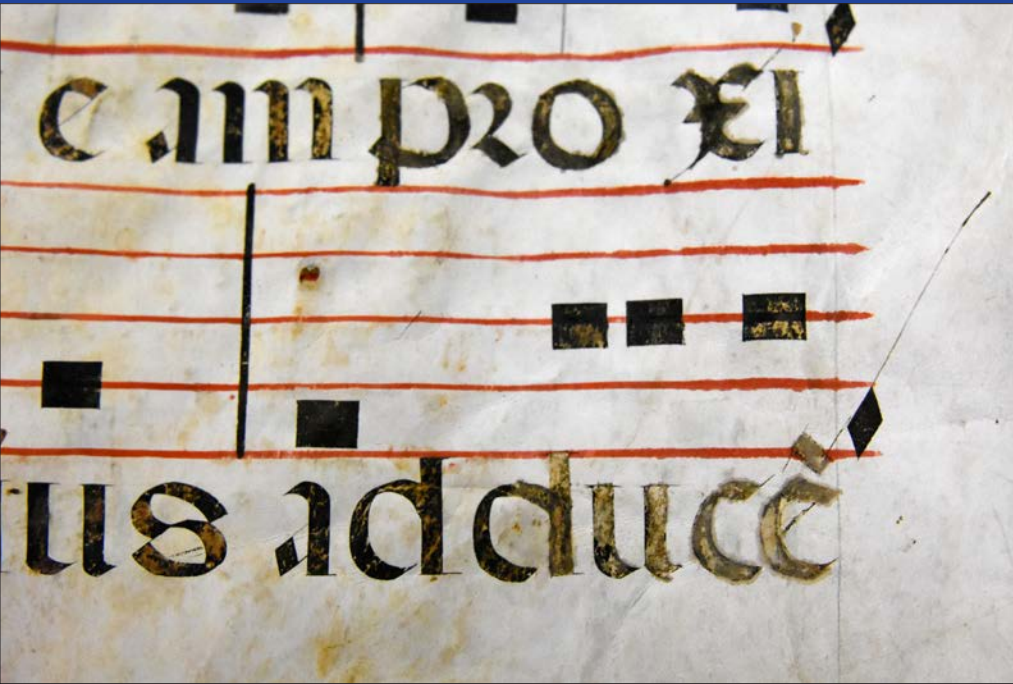 e am pro xi
us adduce